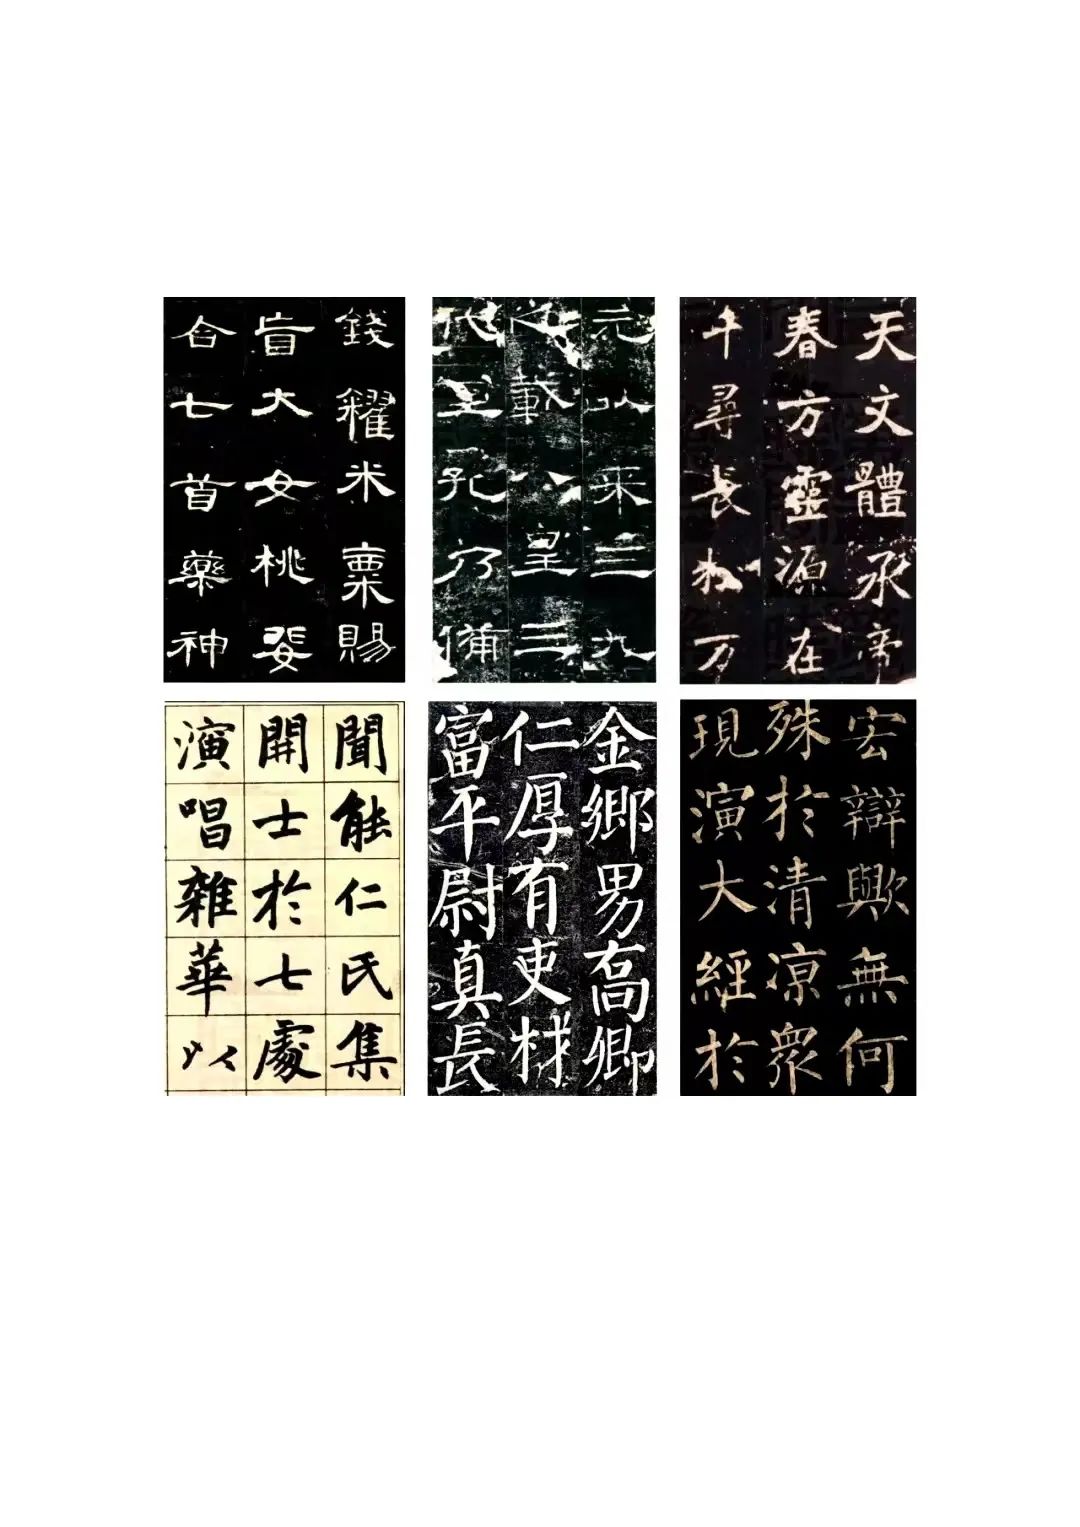 錢糴米粟賜
盲大女桃婓
合七首藥神
元以來三九
之載八皇三
代至孔乃備
天文體承帝
春方靈源在
千尋長松万
聞能仁氏集
開士於七處
演唱雜華以
金鄉男高卿
仁厚有吏材
富平尉真長
宏辯歟無何
殊於清凉衆
現演大經於